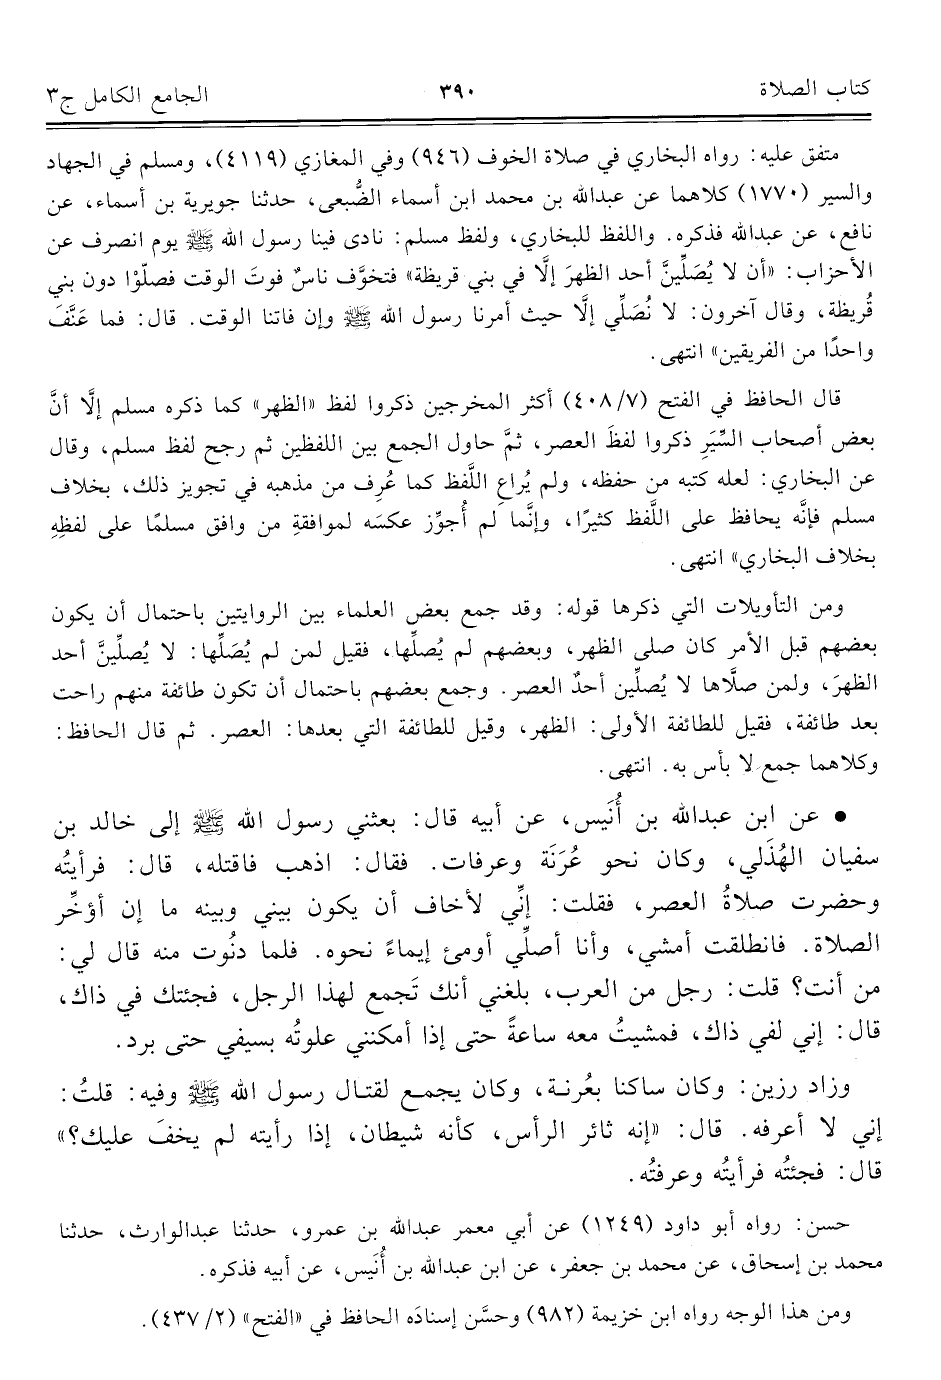 كتاب الصلاة ٣٩٠ الجامع الكامل ج٣
متفق عليه: رواه البخاري في صلاة الخوف (٩٤٦) وفي المغازي (٤١١٩)، ومسلم في الجهاد
والسير (١٧٧٠) كلاهما عن عبدالله بن محمد ابن أسماء الضُّبعى، حدثنا جويرية بن أسماء، عن
نافع، عن عبدالله فذكره. واللفظ للبخاري، ولفظ مسلم: نادى فينا رسول الله ﷺ يوم انصرف عن
الأحزاب: «أن لا يُصَلِّينَّ أحد الظهرَ إلَّا في بني قريظة» فتخوَّف ناسٌ فوتَ الوقت فصلّوْا دون بني
قُريظة، وقال آخرون: لا نُصَلِّي إلَّا حيث أمرنا رسول الله ﷺ وإن فاتنا الوقت. قال: فما عَنَّفَ
واحدًا من الفريقين» انتهى.
قال الحافظ في الفتح (٧/ ٤٠٨) أكثر المخرجين ذكروا لفظ «الظهر» كما ذكره مسلم إلَّا أنَّ
بعض أصحاب السِّيَرِ ذكروا لفظَ العصر، ثمَّ حاول الجمع بين اللفظين ثم رجح لفظ مسلم، وقال
عن البخاري: لعله كتبه من حفظه، ولم يُراعِ اللَّفظ كما عُرِف من مذهبه في تجويز ذلك، بخلاف
مسلم فإنَّه يحافظ على اللَّفظ كثيرًا، وإنَّما لم أُجوِّز عكسَه لموافقةِ من وافق مسلمًا على لفظِهِ
بخلاف البخاري» انتهى.
ومن التأويلات التي ذكرها قوله: وقد جمع بعض العلماء بين الروايتين باحتمال أن يكون
بعضهم قبل الأمر كان صلى الظهر، وبعضهم لم يُصلِّها، فقيل لمن لم يُصَلِّها: لا يُصلِّينَّ أحد
الظهرَ، ولمن صلَّاها لا يُصلِّين أحدٌ العصر. وجمع بعضهم باحتمال أن تكون طائفة منهم راحت
بعد طائفة، فقيل للطائفة الأولى: الظهر، وقيل للطائفة التي بعدها: العصر. ثم قال الحافظ:
وكلاهما جمع لا بأس به. انتهى.
• عن ابن عبدالله بن أُنَيس، عن أبيه قال: بعثني رسول الله ﷺ إلى خالد بن
سفيان الهُذَلي، وكان نحو عُرَنَة وعرفات. فقال: اذهب فاقتله، قال: فرأيتُه
وحضرت صلاةُ العصر، فقلت: إنِّي لأخاف أن يكون بيني وبينه ما إن أؤخِّر
الصلاة. فانطلقت أمشي، وأنا أصلِّي أومئ إيماءً نحوه. فلما دنُوت منه قال لي:
من أنت؟ قلت: رجل من العرب، بلغني أنك تَجمع لهذا الرجل، فجئتك في ذاك،
قال: إني لفي ذاك، فمشيتُ معه ساعةً حتى إذا أمكنني علوتُه بسيفي حتى برد.
وزاد رزين: وكان ساكنا بعُرنة، وكان يجمع لقتال رسول الله ﷺ وفيه: قلتُ:
إني لا أعرفه. قال: «إنه ثائر الرأس، كأنه شيطان، إذا رأيته لم يخفَ عليك؟»
قال: فجئتُه فرأيتُه وعرفتُه.
حسن: رواه أبو داود (١٢٤٩) عن أبي معمر عبدالله بن عمرو، حدثنا عبدالوارث، حدثنا
محمد بن إسحاق، عن محمد بن جعفر، عن ابن عبدالله بن أُنَيس، عن أبيه فذكره.
ومن هذا الوجه رواه ابن خزيمة (٩٨٢) وحسَّن إسنادَه الحافظ في «الفتح» (٢/ ٤٣٧).